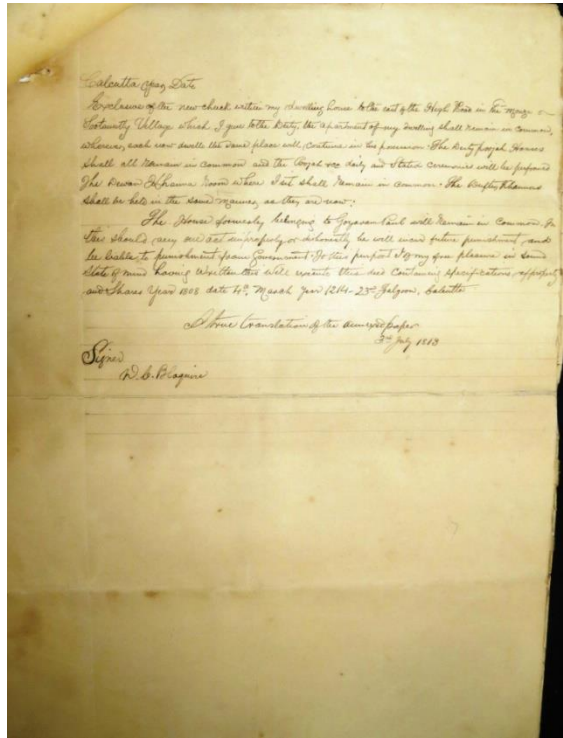 Calcutta
Exclusive of the new check within my dwelling house to the east of the High Road in the
Village which I give to the Deity, the apartment of my dwelling shall remain in common,
wherever, each now dwells the same place will continue in his possession. The Houses
shall all Remain in common and the daily and Stated ceremonies will be performed
The Dewan Khanna Room where I sit shall Remain in common. The
shall be held in the same manner as they are now.
The House formerly belonging to Paul will Remain in Common. In
Case should any one act improperly or dishonestly he will incur future punishment and
be liable to punishment from Government. To this purport I of my free pleasure in sound
State of mind having Written this Will execute this deed Containing specifications of property
and Shares Year 1808 date 4th March Year 1214 - 23rd Falgoon, Calcutta
A true translation of the annexed paper
3rd July 1813
Signed
W. C. Blaquire